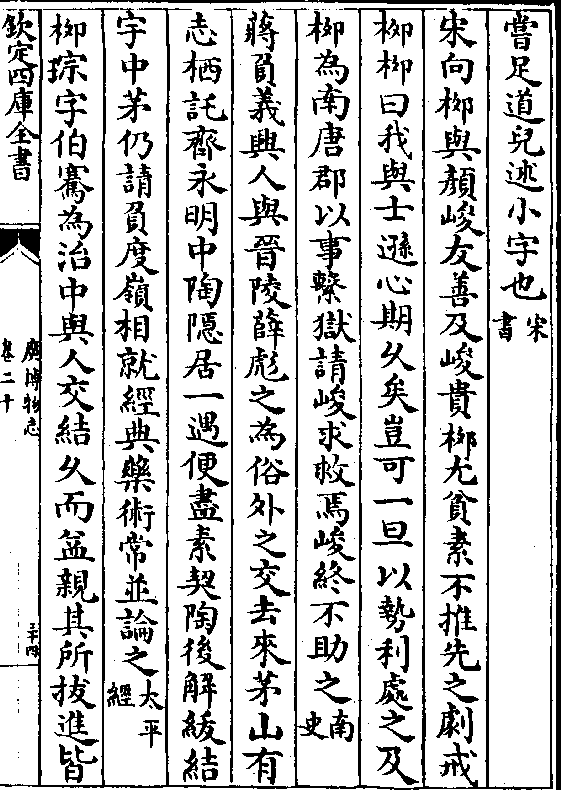 嘗足道兒迹小字也宋書
宋向栁與顔峻友善及峻貴栁尤貧素不推先之劇戒
栁栁曰我與士遜心期久矣豈可一旦以勢利處之及
栁為南唐郡以事繫獄請峻求救焉峻終不助之南史
蔣負義興人與晉陵薛彪之為俗外之交去來茅山有
志栖託齊永明中陶隠居一遇便盡素契陶後解紱結
宇中茅仍請負度嶺相就經典藥術常並論之太平經
栁琮字伯騫為治中與人交結久而益親其所拔進皆
欽定四庫全書
廣博物志
卷二十
二十四